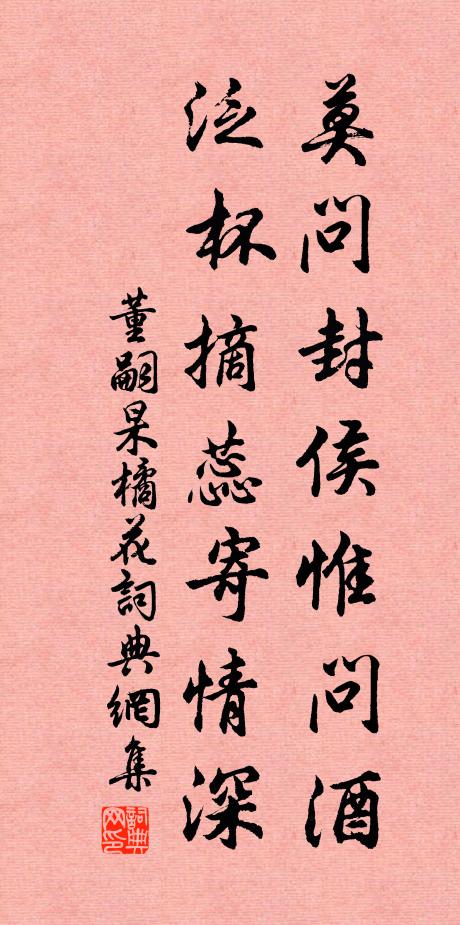 莫問封侯惟問酒
泛杯摘蕊寄情深
董嗣杲橘花詞典網集
詞典
网印